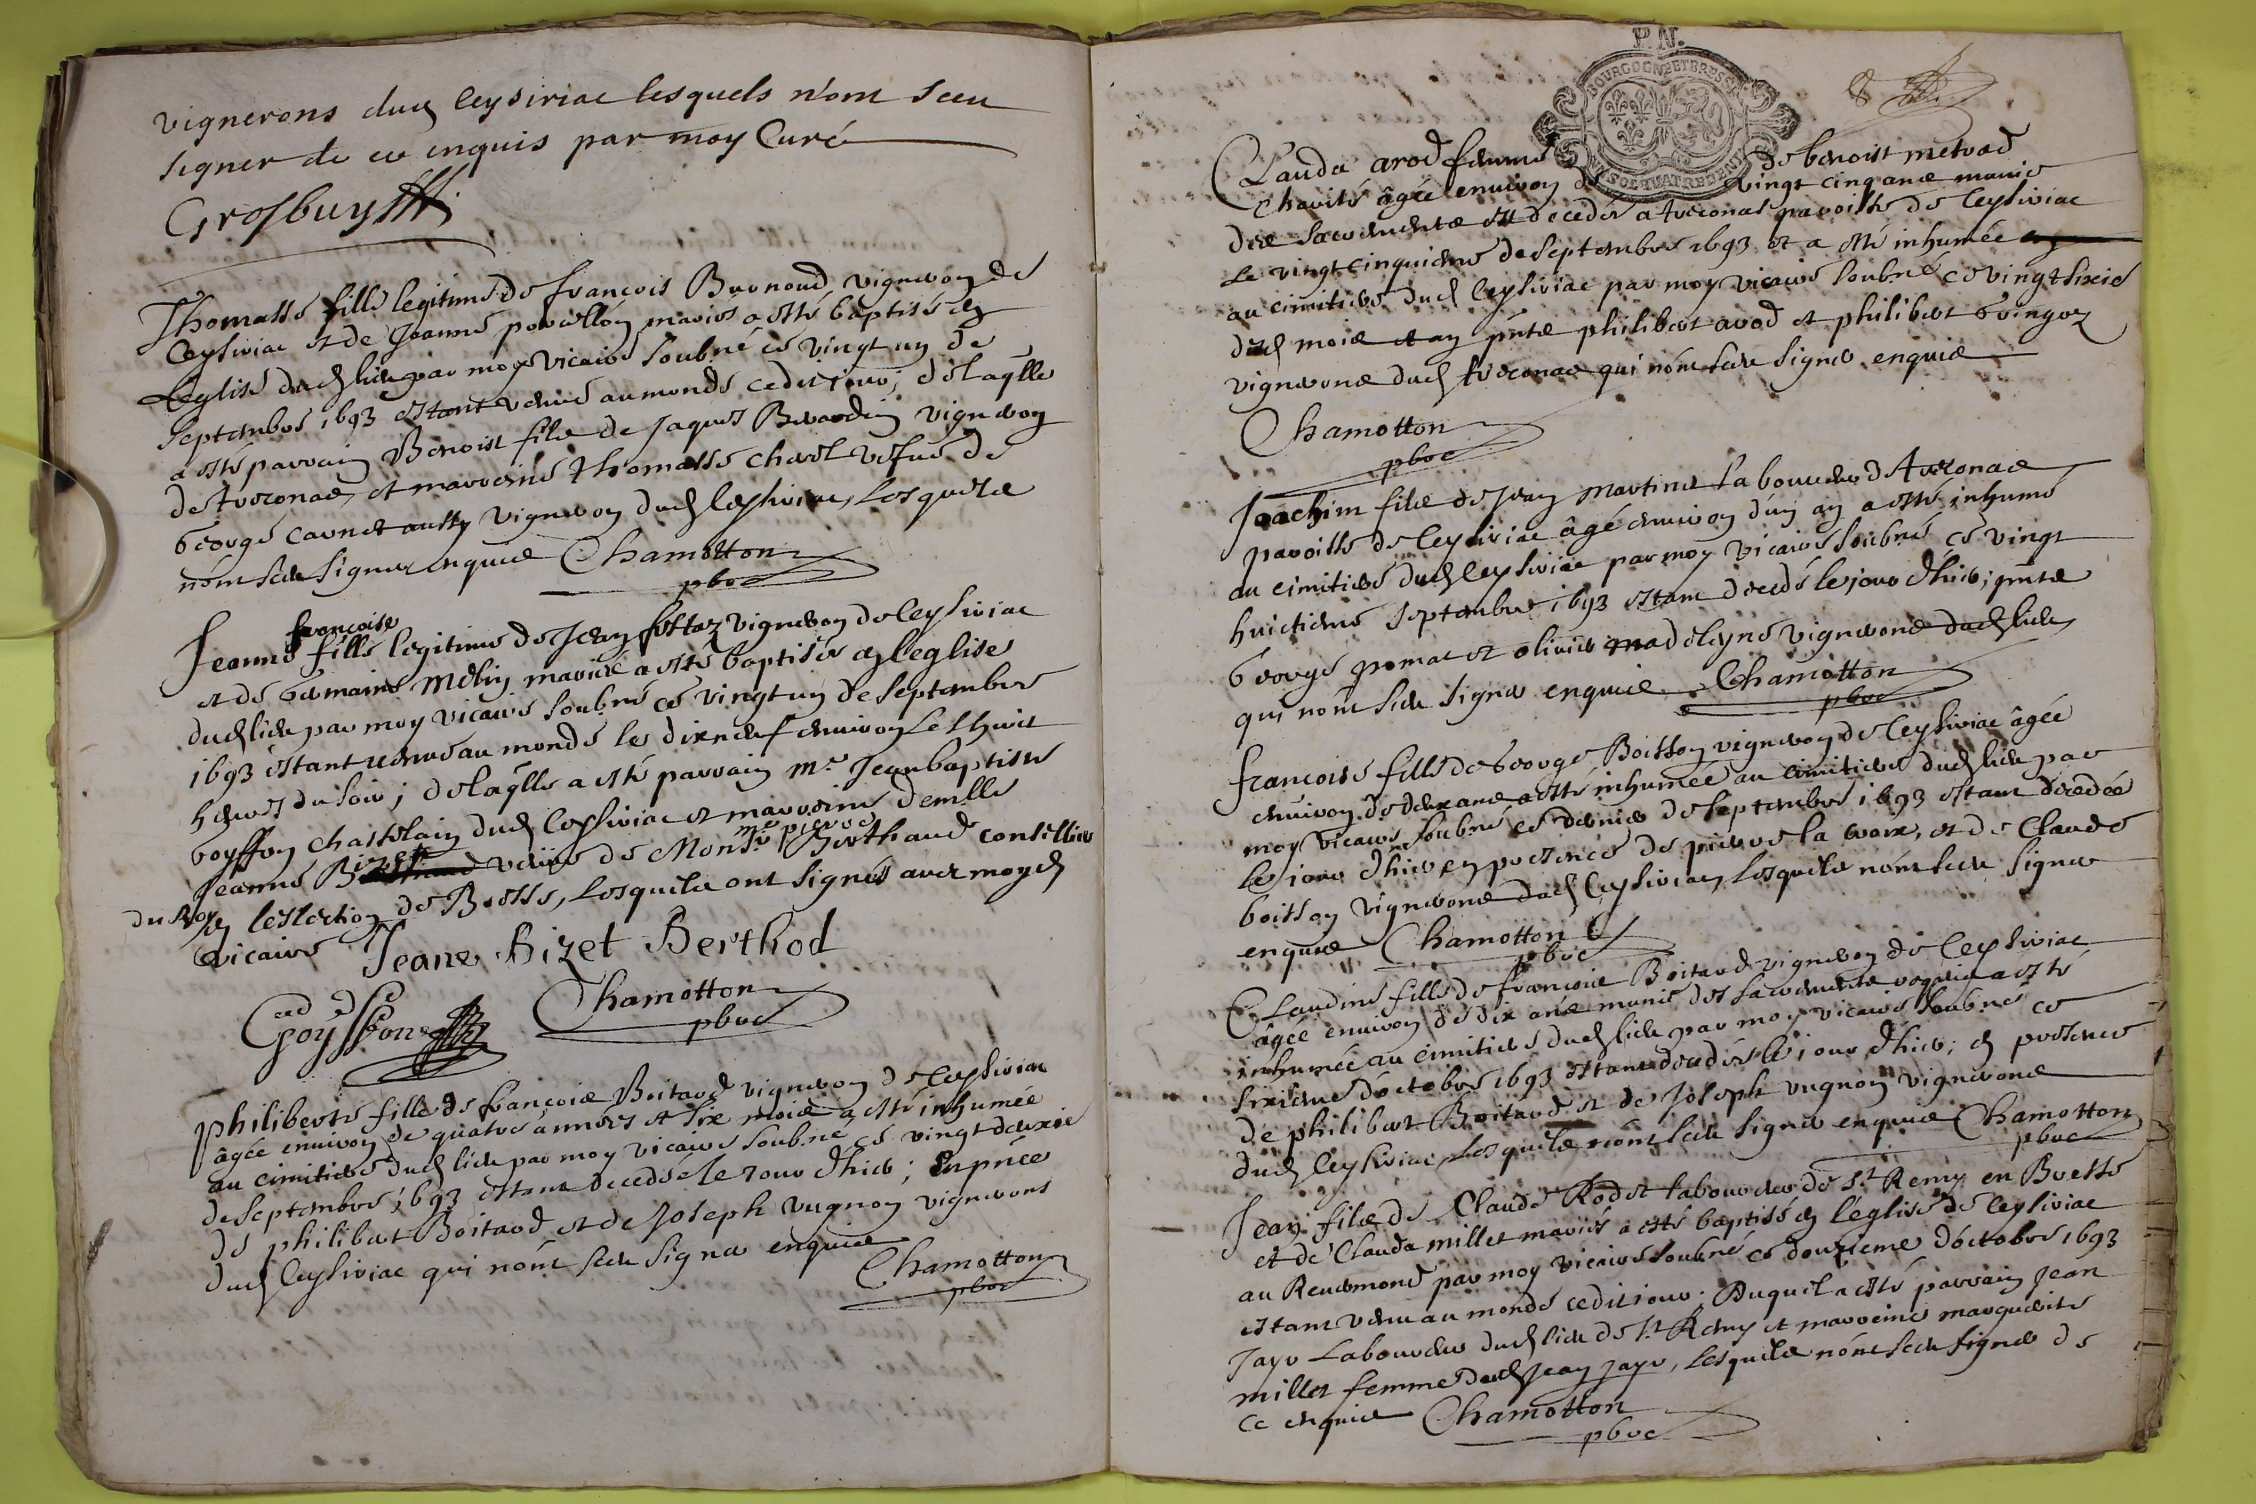 vignerons dud Ceysiriac lesquels n'ont sceu
signer de ce enquis par moy Curé
Grosbuys
Thomasse fille legitime de francois Burnoud vigneron de
Ceysiriac et de Jeanne mariés a esté baptisée en
l'eglise dud lieu par moy vicaire soubné ce vingt un de
septembre 1693 estant venue au monde cedit jour; de laqlle
a esté parrain Benoist fils de Jaques vigneron
de treconas, et marreine thomasse vefve de
George carnet aussy vigneron dud Ceysiriac, lesquels
n'ont sceu signer enquis Chamotton
pbre
francoise
Jeanne fille legitime de Jean vigneron de Ceysiriac
et de Germaine mariés a esté baptisée en l'eglise
dud lieu par moy vicaire soubné ce vingt un de septembre
1693 estant venue au monde le dixneuf environ les huit
heures du soir; de laqlle a esté parrain mr Jeanbaptiste
goyffon chastelain dud Ceysiriac et marreine demlle
me pierre
Jeanne Bizet vefve de Monsr Berthaud conseillier
du Roy en l'eslection de Bresse, lesquels ont signés avec moyd
vicaire Jeane Bizet Berthod
Goyffon Chamotton
pbre
philiberte fille de francois Boitard vigneron de Ceysiriac
âgée environ de quatre années et six mois a esté inhumée
au cimitiere dud lieu par moy vicaire soubné ce vingt deuxie
de septembre 1693 estant decedée le jour d'hier; en pnce
de philibert Boitard et de Joseph vugnon vignerons
dud Ceysiriac qui n'ont sceu signer enquis
Chamotton
pbre
P.N.
BOURGOGNE ET BRESSE
Clauda arod femme de benoist
charité âgée environ de vingt cinq ans munie
des sacrements est decedée a treconas paroisse de Ceysiriac
le vingt cinquieme de septembre 1693 et a esté inhumée
au cimitiere dud Ceysiriac par moy vicaire soubné ce vingt sixie
dud mois et an pnts philibert arod et philibert
vignerons dud treconas qui n'ont sceu signer enquis
Chamotton
pbre
Joachim fils de Jean martinet laboureur de treconas
paroisse de Ceysiriac âgé environ d'un an a esté inhumé
au cimitiere dud Ceysiriac par moy vicaire soubné ce vingt
huictieme septembre 1693 estant decedé le jour d'hier; pnts
George pomat et olivier madeleyne vignerons dud lieu
qui n'ont sceu signer enquis Chamotton
pbre
francoise fille de George Boisson vigneron de Ceysiriac âgée
environ de deux ans a esté inhumée au cimitiere dud lieu par
moy vicaire soubné ce dernier de septembre 1693 estant decedée
le jour d'hier en presence de pierre la croix, et de Claude
boisson vignerons dud Ceysiriac, lesquels n'ont sceu signer
enquis Chamotton
pbre
Claudine fille de francois Boitard vigneron de Ceysiriac
âgée environ de dix ans munie des sacrements requis a esté
inhumée au cimitiere dud lieu par moy vicaire soubné ce
sixieme d'octobre 1693 estant decedée le jour d'hier; en presence
de philibert Boitard et de Joseph vugnon vignerons
dud Ceysiriac, lesquels n'ont sceu signer enquis Chamotton
pbre
Jean fils de Claude Rodet laboureur de St Remy en Bresse
et de Clauda millet mariés a esté baptisé en l'eglise de Ceysiriac
au Revermont par moy vicaire soubné ce douzieme d'octobre 1693
estant venu au monde cedit jour. Duquel a esté parrain Jean
Jayr laboureur dud lieu de St Remy et marreine marguerite
millet femme dud Jean Jayr, lesquels n'ont sceu signer de
ce enquis Chamotton
pbre